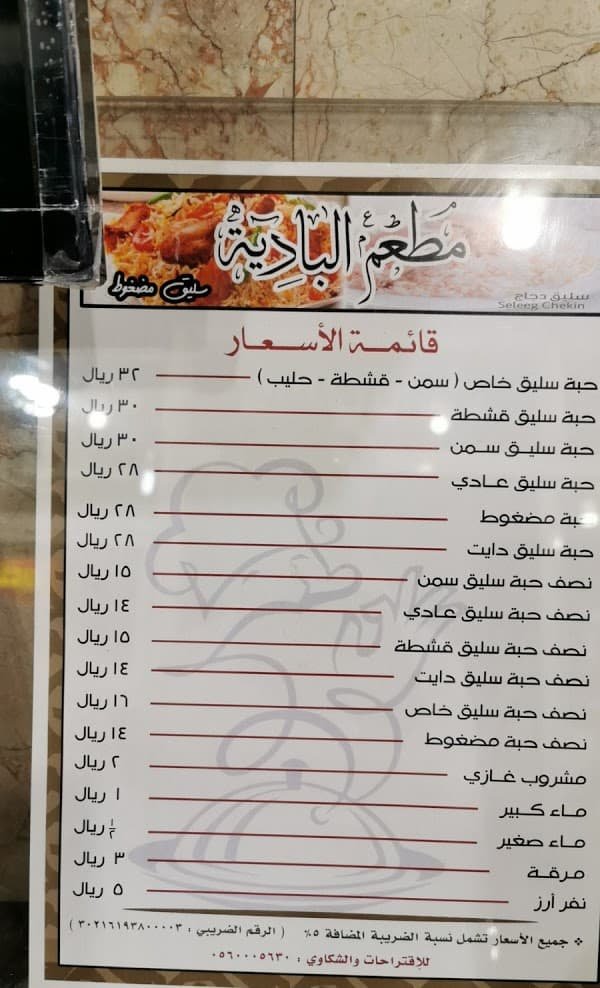 مطعم البادية
سليق مضغوط
سليق دجاج
Seleeg Chekin
قائمة الأسعار
حبة سليق خاص ( سمن - قشطة - حليب ) ٣٢ ريال
حبة سليق قشطة ٣٠ ريال
حبة سليق سمن ٣٠ ريال
حبة سليق عادي ٢٨ ريال
حبة مضغوط ٢٨ ريال
حبة سليق دايت ٢٨ ريال
نصف حبة سليق سمن ١٥ ريال
نصف حبة سليق عادي ١٤ ريال
نصف حبة سليق قشطة ١٥ ريال
نصف حبة سليق دايت ١٤ ريال
نصف حبة سليق خاص ١٦ ريال
نصف حبة مضغوط ١٤ ريال
مشروب غازي ٢ ريال
ماء كبير ١ ريال
ماء صغير ١/٢ ريال
مرقة ٣ ريال
نفر أرز ٥ ريال
جميع الأسعار تشمل نسبة الضريبة المضافة ٥% ( الرقم الضريبي : ٣٠٢١٦١٩٣٨٠٠٠٠٣ )
للإقتراحات والشكاوي : ٠٥٦٠٠٠٥٦٣٠